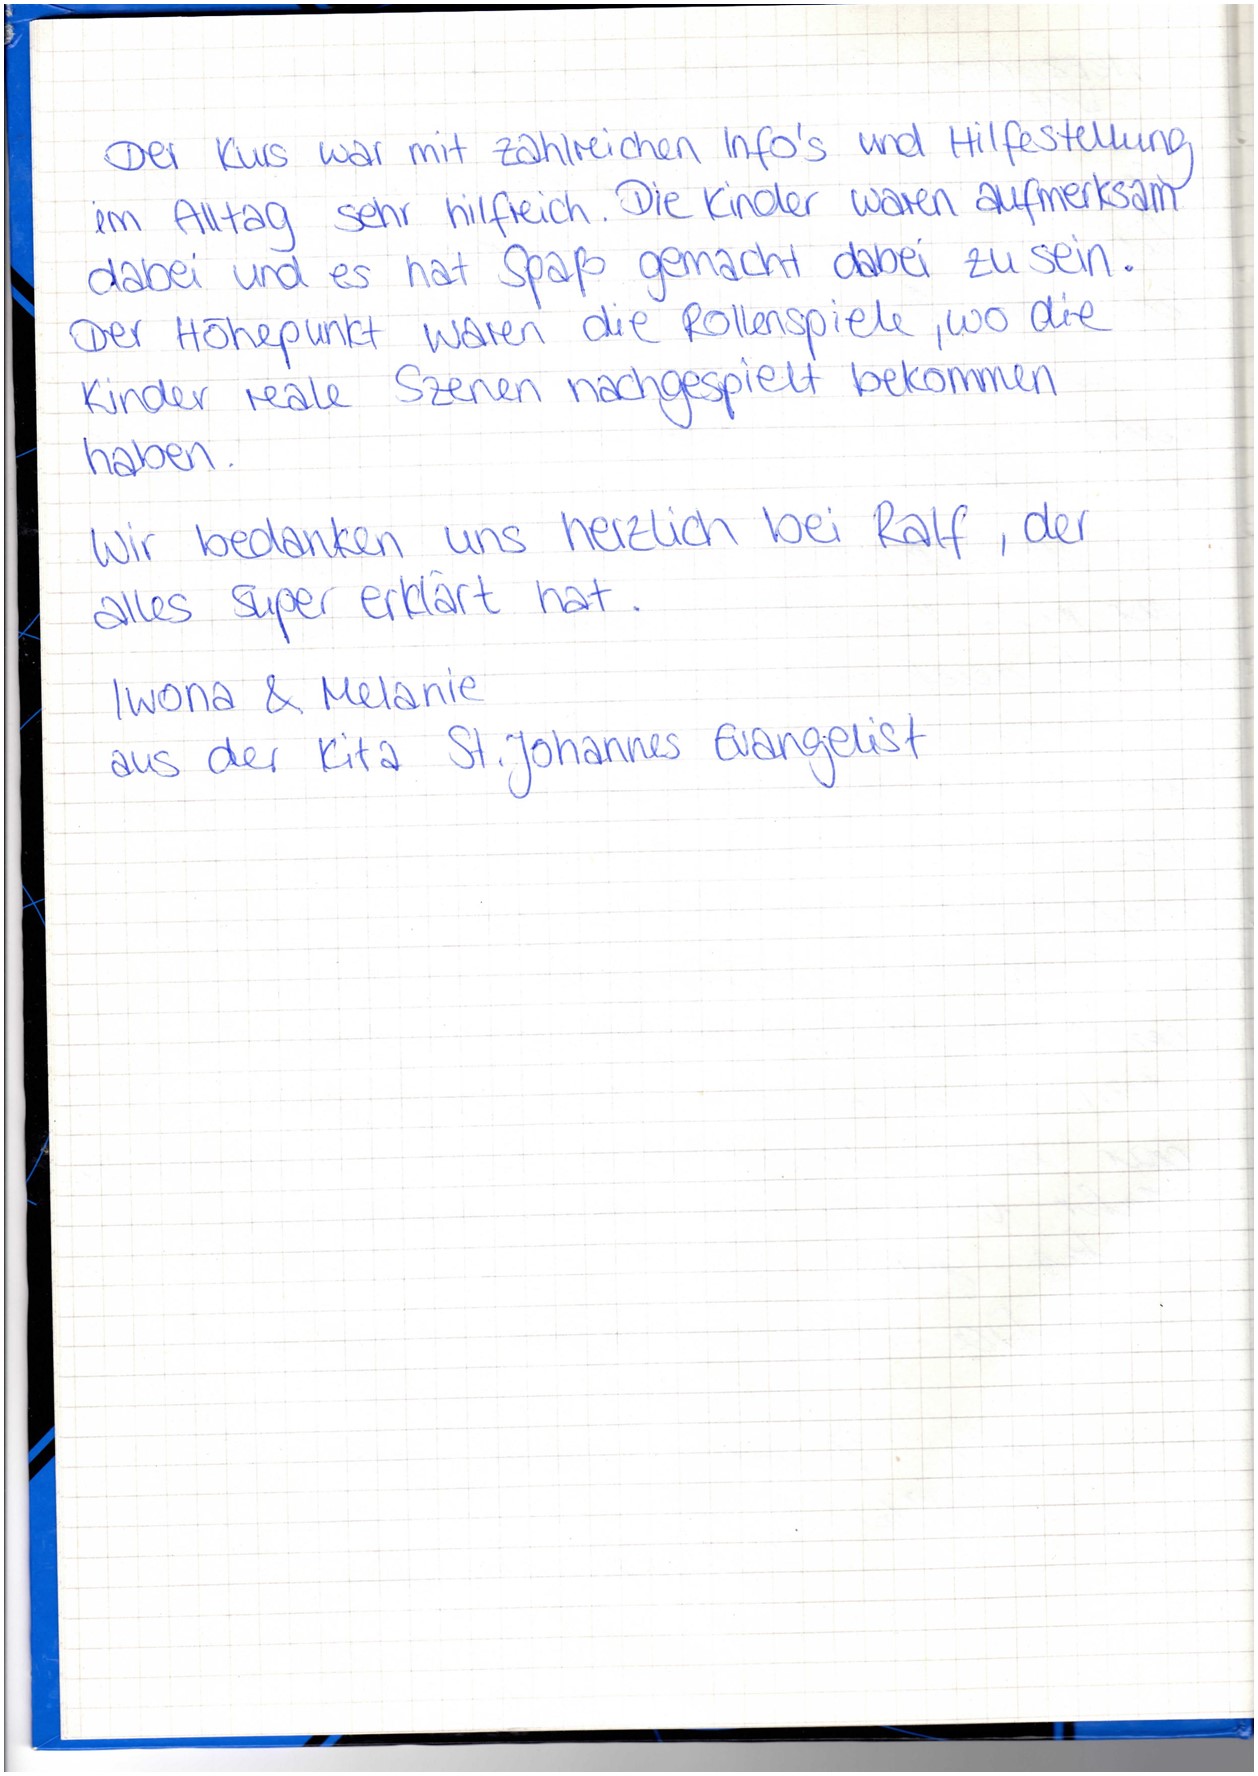 Der Kurs war mit zahlreichen Info's und Hilfestellung
im Alltag sehr hilfreich. Die Kinder waren aufmerksam
dabei und es hat Spaß gemacht dabei zu sein.
Der Höhepunkt waren die Rollenspiele, wo die
Kinder reale Szenen nachgespielt bekommen
haben.
Wir bedanken uns herzlich bei Ralf, der
alles super erklärt hat.
Iwona & Melanie
aus der Kita St. Johannes Evangelist